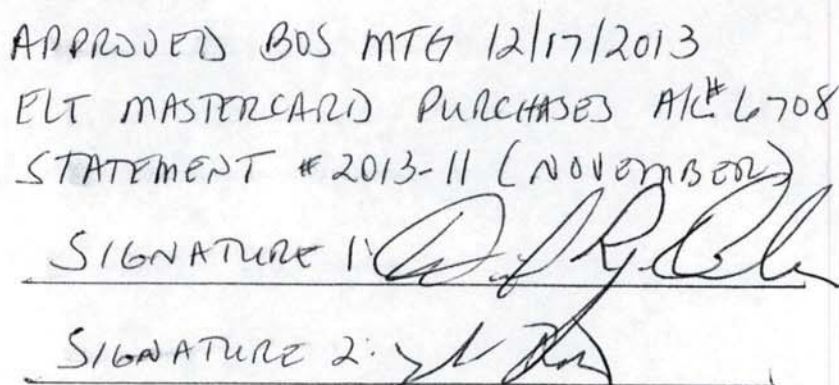 APPROVED BOS MTG 12/17/2013
ELT MASTERCARD PURCHASES A/C# 6708
STATEMENT # 2013-11 (NOVEMBER)
SIGNATURE 1:
SIGNATURE 2: